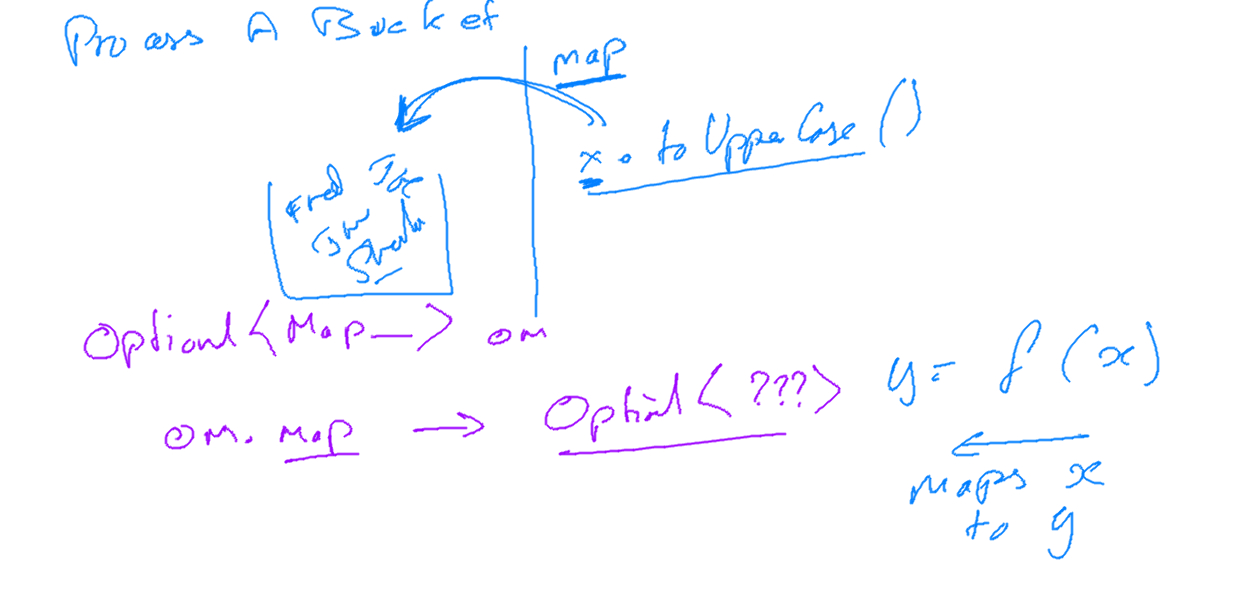 Process A Bucket
map
x. toUpperCase()
Fred Joe
Jim
Sheila
Optional<Map—> om
om. map → Optional<???>
y = f(x)
maps x
to y